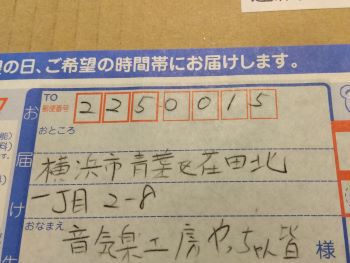 の日、ご希望の時間帯にお届けします。
TO
郵便番号
2250015
おところ
横浜市青葉区荏田北
一丁目2-8
おなまえ
音気楽工房やっちゃん皆様
お届け